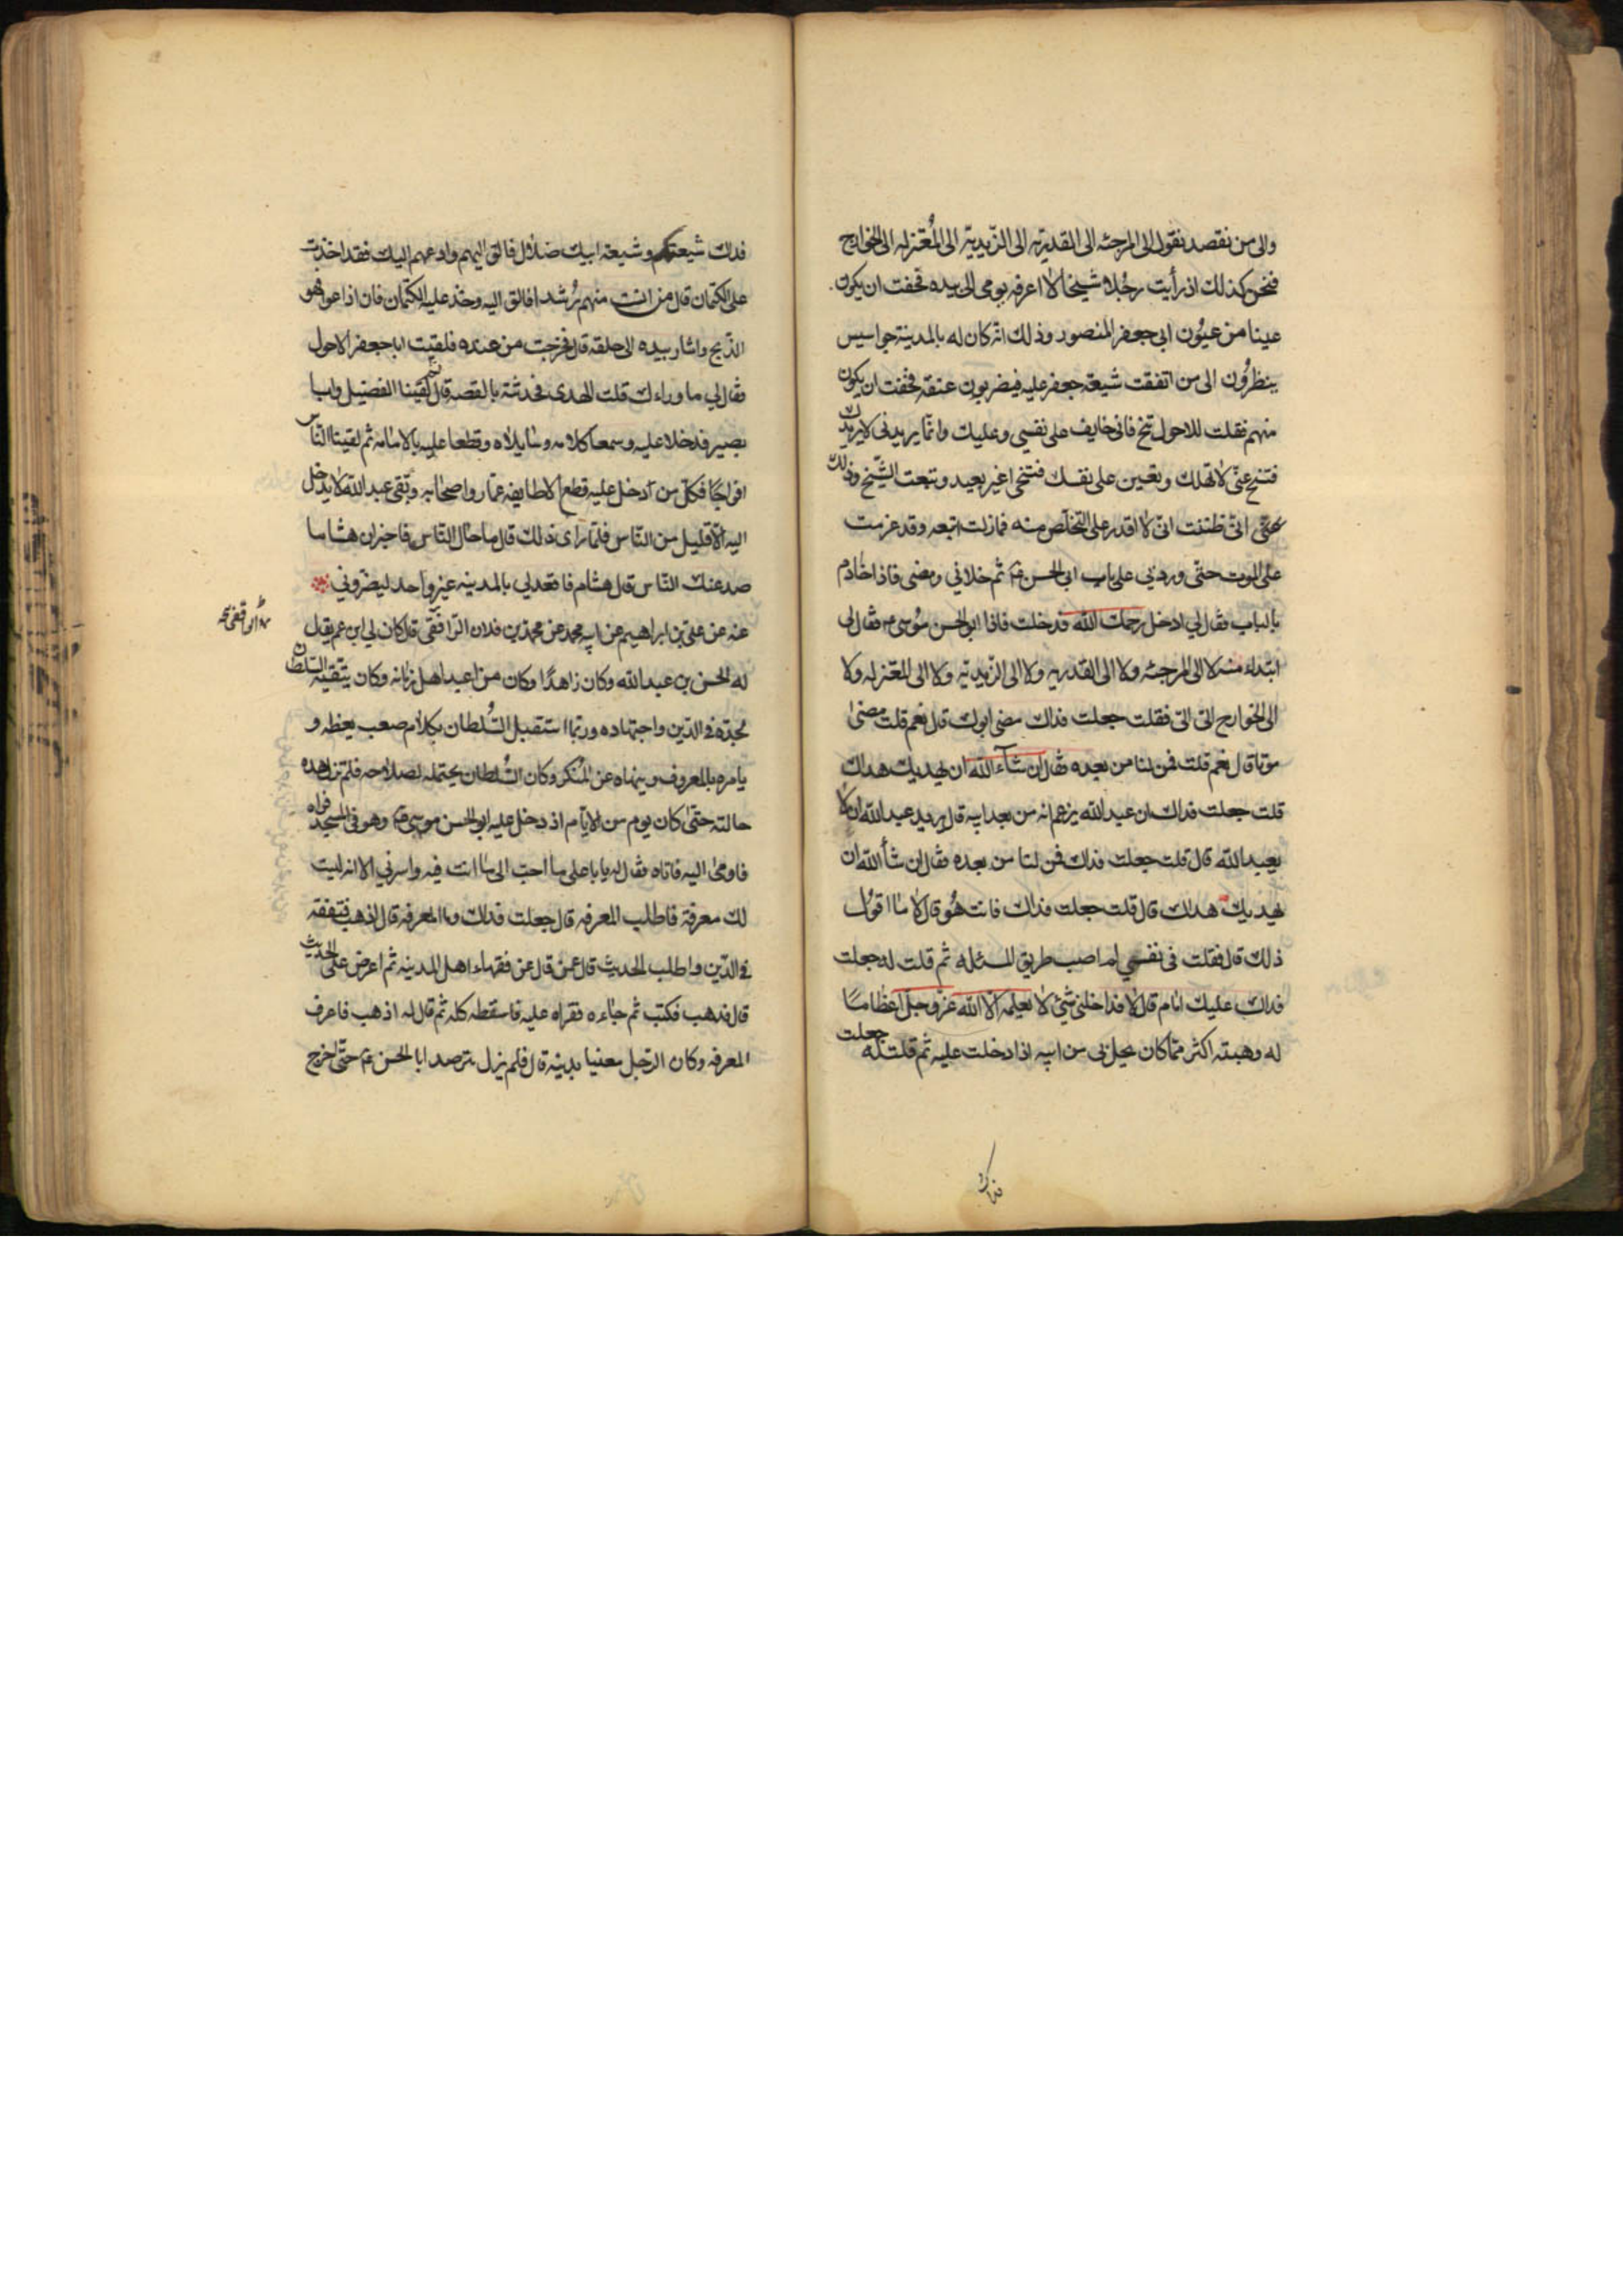 والى من نقصد نقول الى المرجئه الى القدريّه الى الزّيديّة الى المُعتزله الى الخوارج
فنحن كذلك اذ رأيت رجُلا شيخا لا اعرفه يومى الى بيده فخفت ان يكون
عينا من عيُون ابى جعفر المنصور وذلك انّه كان له بالمدينة جواسيس
ينظرُون الى من اتفقت شيعة جعفر عليه فيضربون عنقه فخفت ان يكون
منهم فقلت للاحول تنحّ فانى خايف على نفسي وعليك وانّما يريدنى لا يريدك
فتنح عنّى لا تهلك وتعين على نفسك فتنحى غير بعيد وتبعت الشّيخ وذلك
انّى ظننت انّى لا اقدر على التخلّص منه فمازلت اتبعه وقد عزمت
على الموت حتّى ورد بى على باب ابى الحسن ع ثم خلانى ومضى فاذا خادم
بالباب فقال لي ادخل رحمك الله فدخلت فاذا ابو الحسن مُوسى م فقال لى
ابتداء منه لا الى المرجئه ولا الى القدريه ولا الى الزّيديّة ولا الى المعتزله ولا
الى الخوارج الىّ الىّ فقلت جعلت فداك مضى ابوك قال نعم قلت مضىٰ
موتا قال نعم قلت فمن لنا من بعده فقال ان شآء الله ان يهديك هداك
قلت جعلت فداك ان عبد الله يزعم انه من بعد ابيه قال يريد عبد الله ان لا
يعبد الله قال قلت جعلت فداك فمن لنا من بعده فقال ان شأ الله ان
يهديك هداك قال قلت جعلت فداك فانت هُو قال لا ما اقول
ذلك قال فقلت فى نفسي لم اصب طريق المسئله ثم قلت له جعلت
فداك عليك امام قال لا فداخلنى شئ لا يعلمه الّا الله عزّ وجلّ اعظاما
له وهيبته اكثر ممّا كان يحل بى من ابيه اذا دخلت عليه ثم قلت له جعلت
فداك
فداك شيعتكم وشيعة ابيك ضلال فالق اليهم وادعهم اليك فقد اخذت
على الكتمان قال من انست منهم رُشدا فالق اليه وخذ عليه الكتمان فان اذاعوا فهو
الذّبح واشار بيده الى حلقه قال فخرجت من عنده فلقيت ابا جعفر الاحول
فقال لي ما وراءك قلت الهدى فحدثته بالقصه قال ثم لقينا الفضيل وابا
بصير فدخلا عليه وسمعا كلامه وسايلاه وقطعا عليه بالامامه ثم لقينا النّاس
افواجًا فكلّ من دخل عليه قطع الا طايفه عمّار واصحابه وبقى عبد الله لا يدخل
اليه الّا قليل من النّاس فلمّا راى ذلك قال ما حال النّاس فاخبر ان هشاما
صد عنك النّاس قال هشام فاقعد لي بالمدينه غير واحد ليضرّوني
عنه عن على بن ابراهيم عن ابيه محمد عن محمد بن فلان الرّافقى قال كان لي ابن عم يقال
له الحسن بن عبد الله وكان زاهدًا وكان من اعبد اهل زمانه وكان يتّقيه السّلطان
لجدّه فى الدّين واجتهاده وربّما استقبل السُّلطان بكلام صعب يعظه و
يامره بالمعروف وينهاه عن المُنكر وكان السُّلطان يحتمله لصلاحه فلم تزل هذه
حالته حتّى كان يوم من الايّام اذ دخل عليه ابو الحسن موسى ع وهو فى المسجد فراه
فاومىٰ اليه فاتاه فقال له يا ابا على ما احبّ الى ما انت فيه واسرّني الا انه ليست
لك معرفة فاطلب المعرفه قال جعلت فداك وما المعرفه قال اذهب فتفقّه
فى الدّين واطلب الحديث قال عمّن قال عن فقهاء اهل المدينه ثم اعرض علىّ الحديث
قال فذهب فكتب ثم جاءه فقراه عليه فاسقطه كله ثم قال له اذهب فاعرف
المعرفه وكان الرّجل معنيا بدينه قال فلم يزل يترصد ابا الحسن ع حتّى خرج